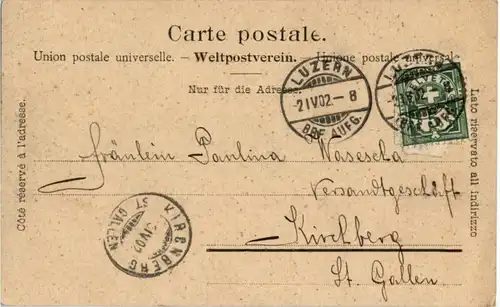 Carte postale.
Union postale universelle. – Weltpostverein. – Unione postale universale
Nur für die Adresse.
LUZERN
-2IV02-8
BRF. AUFG.
LUZERN
Côté réservé à l'adresse.
Lato riservato all'indirizzo
Fräulein Paulina Wasescha
Versandtgeschäft
Kirchberg
St. Gallen
KIRCHBERG
IV02
ST GALLEN